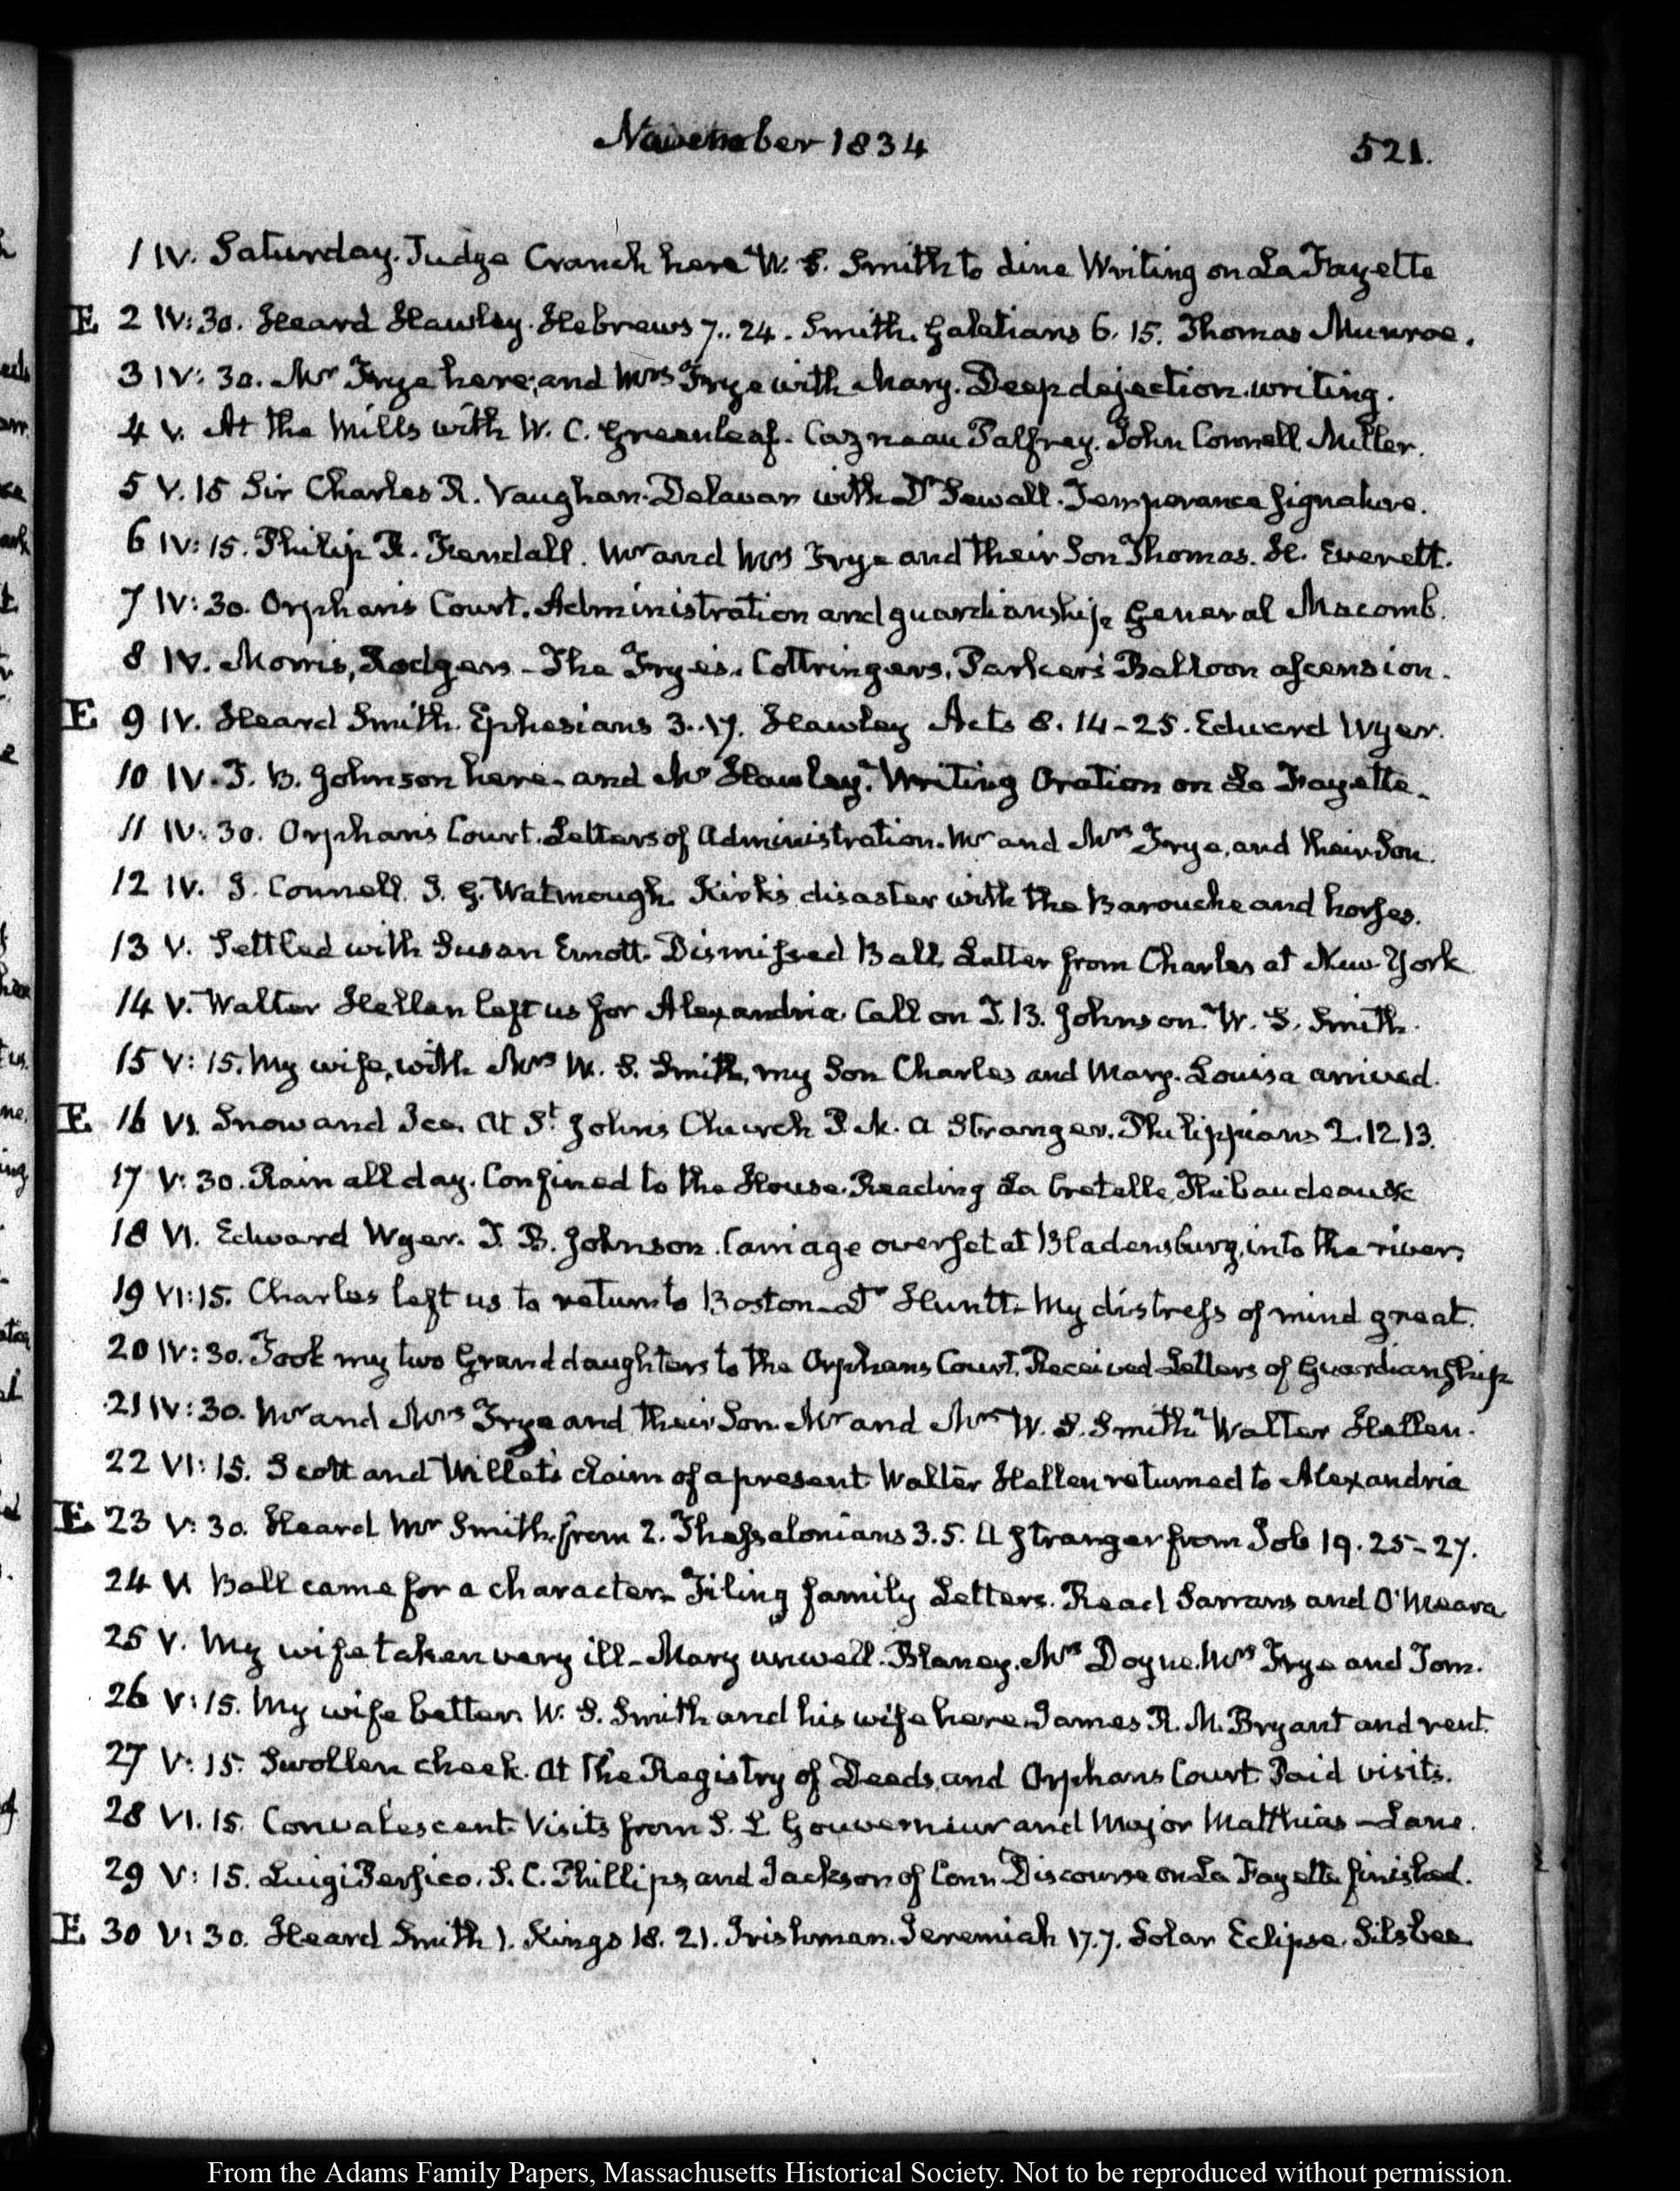 November 1834
521.
1 IV. Saturday. Judge Cranch here W. S. Smith to dine Writing on La Fayette
E 2 IV:30. Heard Hawley. Hebrews 7..24. Smith. Galatians 6.15. Thomas Munroe.
3 IV:30. Mr Frye here; and Mrs Frye with Mary. Deep dejection. writing.
4 V. At the Mills with W. C. Greenleaf. Cazneau Palfrey. John Connell Miller.
5 V.15 Sir Charles R. Vaughan. Delavan with Dr Sewall. Temperance signature.
6 IV:15. Philip R. Fendall. Mr and Mrs Frye and their Son Thomas. H. Everett.
7 IV:30. Orphan's Court. Administration and guardianship General Macomb.
8 IV. Morris, Rodgers - The Frye's. Cottringers, Parker's Balloon ascension.
E 9 IV. Heard Smith. Ephesians 3..17. Hawley Acts 8.14-25. Edward Wyer.
10 IV. T. B. Johnson here. and Mr Hawley. Writing Oration on La Fayette.
11 IV:30. Orphan's Court. Letters of Administration. Mr and Mrs Frye, and their Son.
12 IV. J. Connell. J. G. Watmough. Kirk's disaster with the Barouche and horses.
13 V. Settled with Susan Emott. Dismissed Ball. Letter from Charles at New-York
14 V. Walter Hellen left us for Alexandria. Call on T. B. Johnson. W. S. Smith.
15 V:15. My wife, with Mrs W. S. Smith, my Son Charles and Mary-Louisa arrived.
E 16 VI. Snow and Ice. At St Johns Church P.M. a Stranger. Philippians 2.12 13.
17 V:30. Rain all day. Confined to the House. Reading La Cretelle, Thibaudeau &c
18 VI. Edward Wyer. T. B. Johnson. Carriage overset at Bladensburg, into the river
19 VI:15. Charles left us to return to Boston - Dr Huntt. My distress of mind great.
20 IV:30. Took my two Granddaughters to the Orphans Court. Received Letters of Guardianship
21 IV:30. Mr and Mrs Frye and their Son. Mr and Mrs W. S. Smith. Walter Hellen.
22 VI:15. Scott and Willet's claim of a present Walter Hellen returned to Alexandria
E 23 V:30. Heard Mr Smith. from 2. Thessalonians 3.5. A Stranger from Job 19.25-27.
24 V. Ball came for a character. Filing family Letters. Read Sarrans and O'Meara
25 V. My wife taken very ill - Mary unwell. Blaney. Mrs Doyne. Mrs Frye and Tom.
26 V:15. My wife better. W. S. Smith and his wife here. James R. M. Bryant and rent.
27 V:15. Swollen cheek. At the Registry of Deeds, and Orphans Court. Paid visits.
28 VI.15. Convalescent. Visits from S. L. Gouverneur and Major Matthias - Lane.
29 V:15. Luigi Persico. S. C. Phillips, and Jackson of Conn. Discourse on La Fayette finished.
E 30 V:30. Heard Smith 1. Kings 18.21. Irishman. Jeremiah 17.7. Solar Eclipse. Silsbee
From the Adams Family Papers, Massachusetts Historical Society. Not to be reproduced without permission.